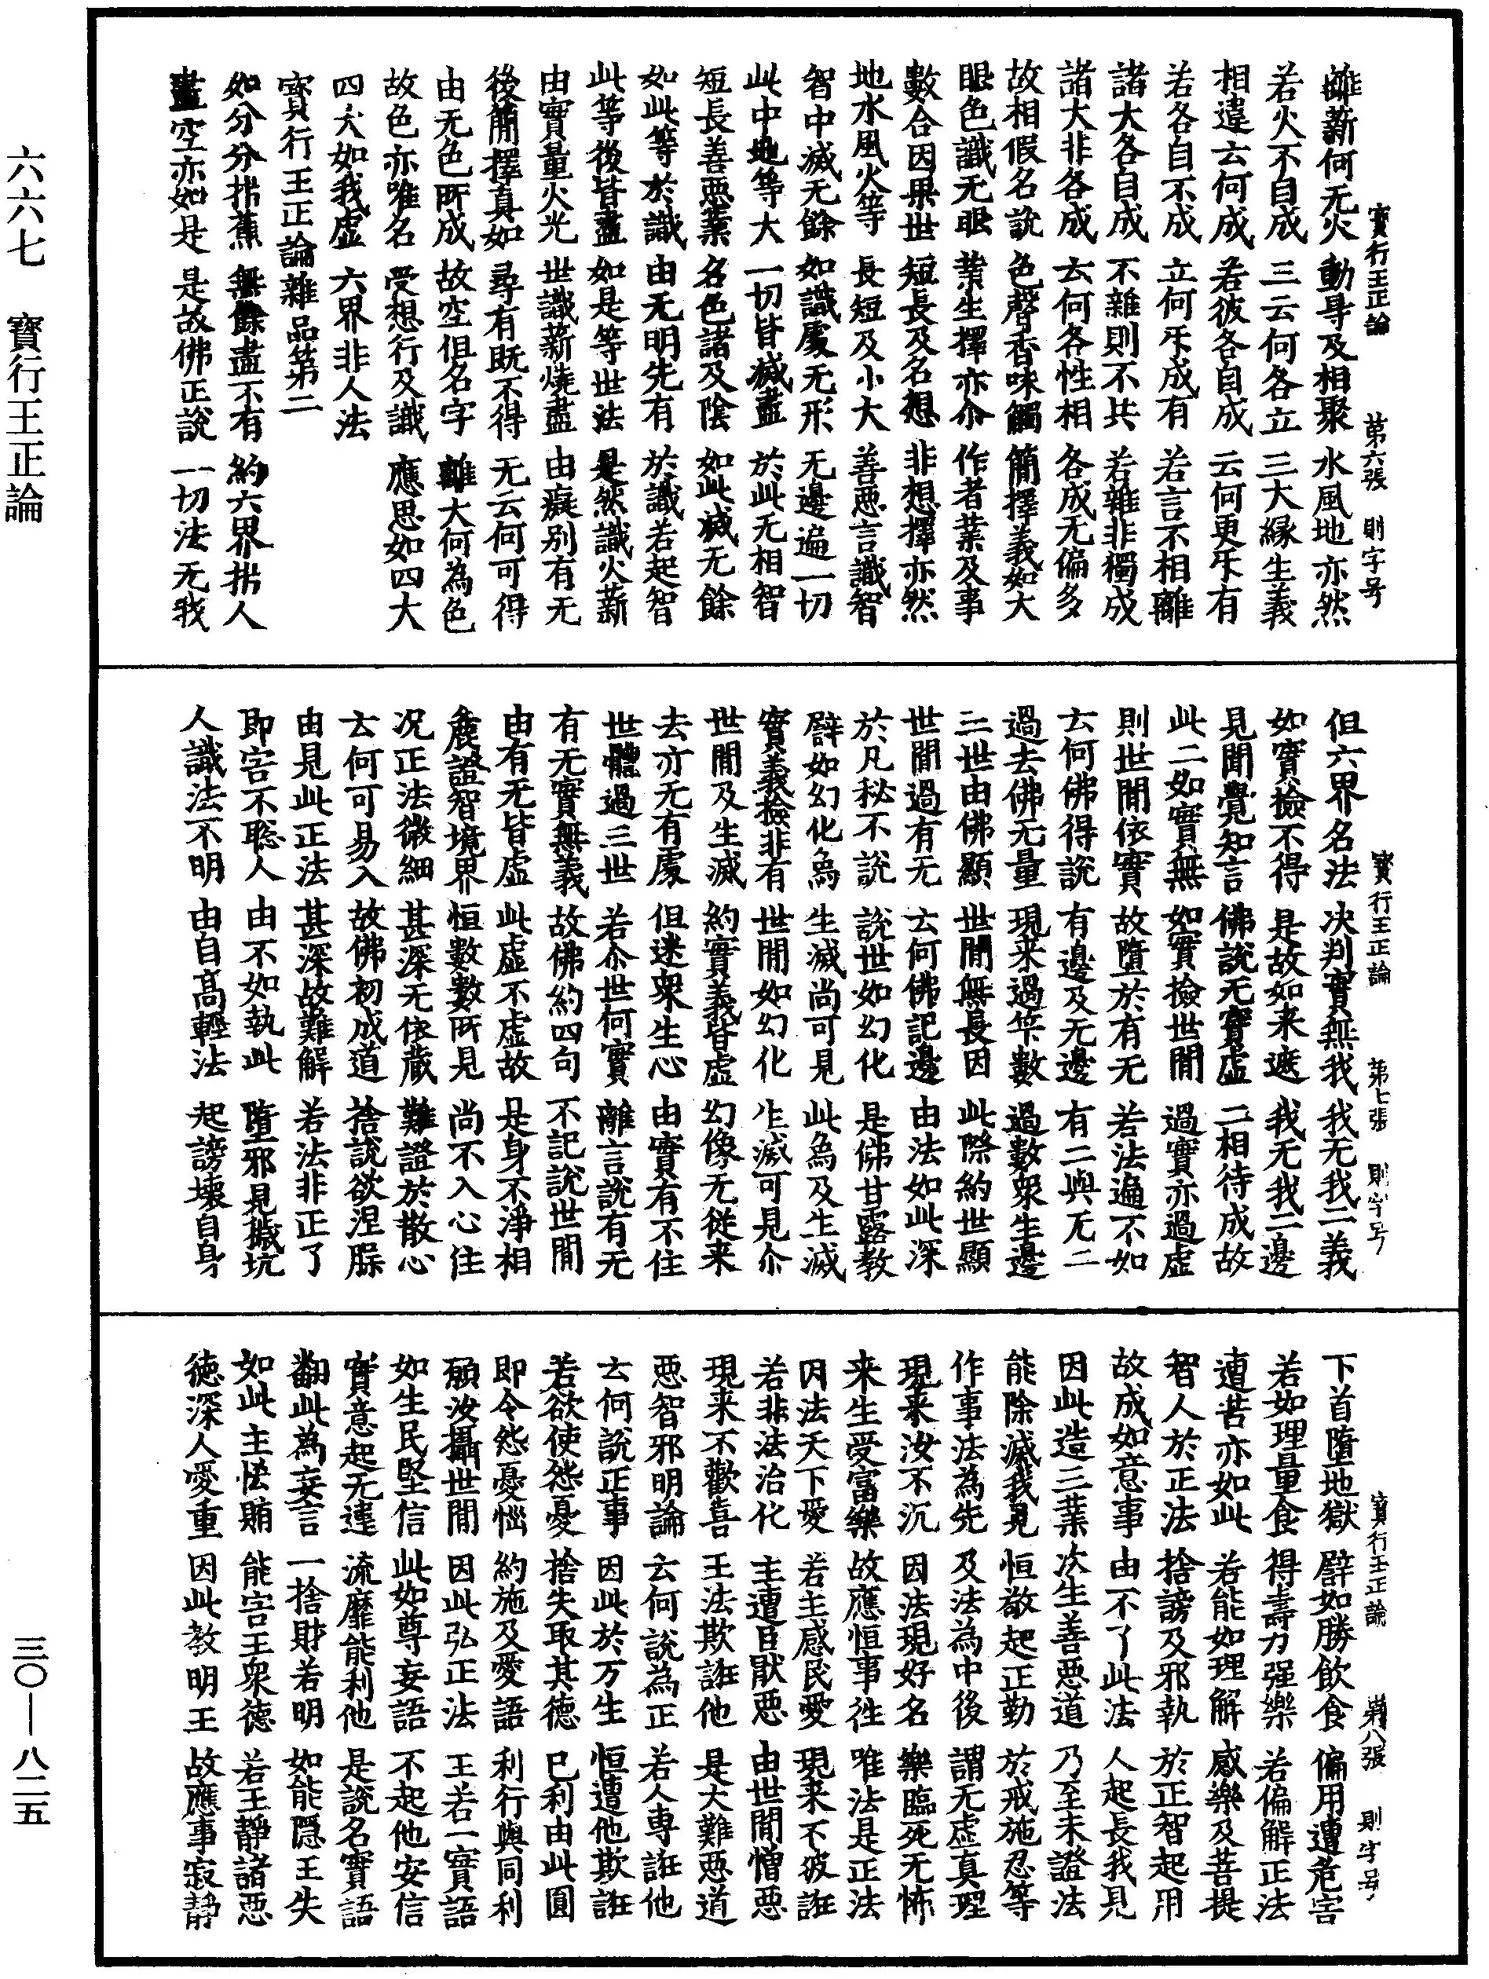 六六七　寶行王正論
三〇—八二五
寶行王正論　第六張　則字号
離薪何无火　動身及相聚　水風地亦然
若火不自成　三云何各立　三大緣生義
相違云何成　若彼各自成　云何更㸦有
若各自不成　立何㸦成有　若言不相離
諸大各自成　不雜則不共　若雜非獨成
諸大非各成　云何各性相　各成无偏多
故相假名說　色聲香味觸　簡擇義如大
眼色識无明　業生擇亦尒　作者業及事
數合因果世　短長及名想　非想擇亦然
地水風火等　長短及小大　善惡言識智
智中滅无餘　如識處无形　无邊遍一切
此中地等大　一切皆滅盡　於此无相智
短長善惡業　名色諸及陰　如此滅无餘
如此等於識　由无明先有　於識若起智
此等後皆盡　如是等世法　是然識火薪
由實量火光　世識薪燒盡　由癡別有无
後簡擇真如　尋有既不得　无云何可得
由无色所成　故空但名字　離大何為色
故色亦唯名　受想行及識　應思如四大
四大如我虛　六界非人法
寶行王正論雜品第二
如分分拆蕉　無餘盡不有　約六界拆人
盡空亦如是　是故佛正說　一切法无我
寶行王正論　第七張　則字号
但六界名法　决判實無我　我无我二義
如實撿不得　是故如来遮　我无我二邊
見聞覺知言　佛說无實虛　二相待成故
此二如實無　如實撿世間　過實亦過虛
則世間依實　故墮於有无　若法遍不如
云何佛得說　有邊及无邊　有二與无二
過去佛无量　現来過筭數　過數衆生邊
三世由佛顯　世間無長因　此際約世顯
世間過有无　云何佛記邊　由法如此深
於凡秘不說　說世如幻化　是佛甘露教
譬如幻化爲　生滅尚可見　此為及生滅
實義撿非有　世間如幻化　生滅可見尒
世間及生滅　約實義皆虛　幻像无從来
去亦无有處　但迷衆生心　由實有不住
世體過三世　若尒世何實　離言說有无
有无實無義　故佛約四句　不記說世間
由有无皆虛　此虛不虛故　是身不淨相
麁證智境界　恒數數所見　尚不入心住
况正法微細　甚深无依蔵　難證於散心
云何可易入　故佛初成道　捨說欲涅槃
由見此正法　甚深故難解　若法非正了
即害不聡人　由不如執此　墮邪見穢坑
人識法不明　由自高輕法　起謗壞自身
寶行王正論　第八張　則字号
下首墮地獄　譬如勝飲食　偏用遭危害
若如理量食　得壽力强樂　若偏解正法
遭苦亦如此　若能如理解　感樂及菩提
智人於正法　捨謗及邪執　於正智起用
故成如意事　由不了此法　人起長我見
因此造三業　次生善惡道　乃至未證法
能除滅我見　恒敬起正勤　於戒施忍等
作事法為先　及法為中後　謂无虛真理
現来汝不沉　因法現好名　樂臨死无怖
来生受富樂　故應恒事徃　唯法是正法
因法天下愛　若主感民愛　現来不彼誑
若非法治化　主遭臣厭惡　由世間憎惡
現来不歡喜　王法欺誑他　是大難惡道
惡智邪明論　云何說為正　若人專誑他
云何說正事　因此於万生　恒遭他欺誑
若欲使怨憂　捨失取其德　已利由此圓
即令怨憂惱　約施及愛語　利行與同利
願汝攝世間　因此弘正法　王若一實語
如生民堅信　此如尊妄語　不起他安信
實意起无違　流靡能利他　是說名實語
翻此為妄言　一捨財若明　如能隱王失
如此主恡賄　能害王衆德　若王靜諸惡
德深人愛重　因此教明王　故應事寂靜